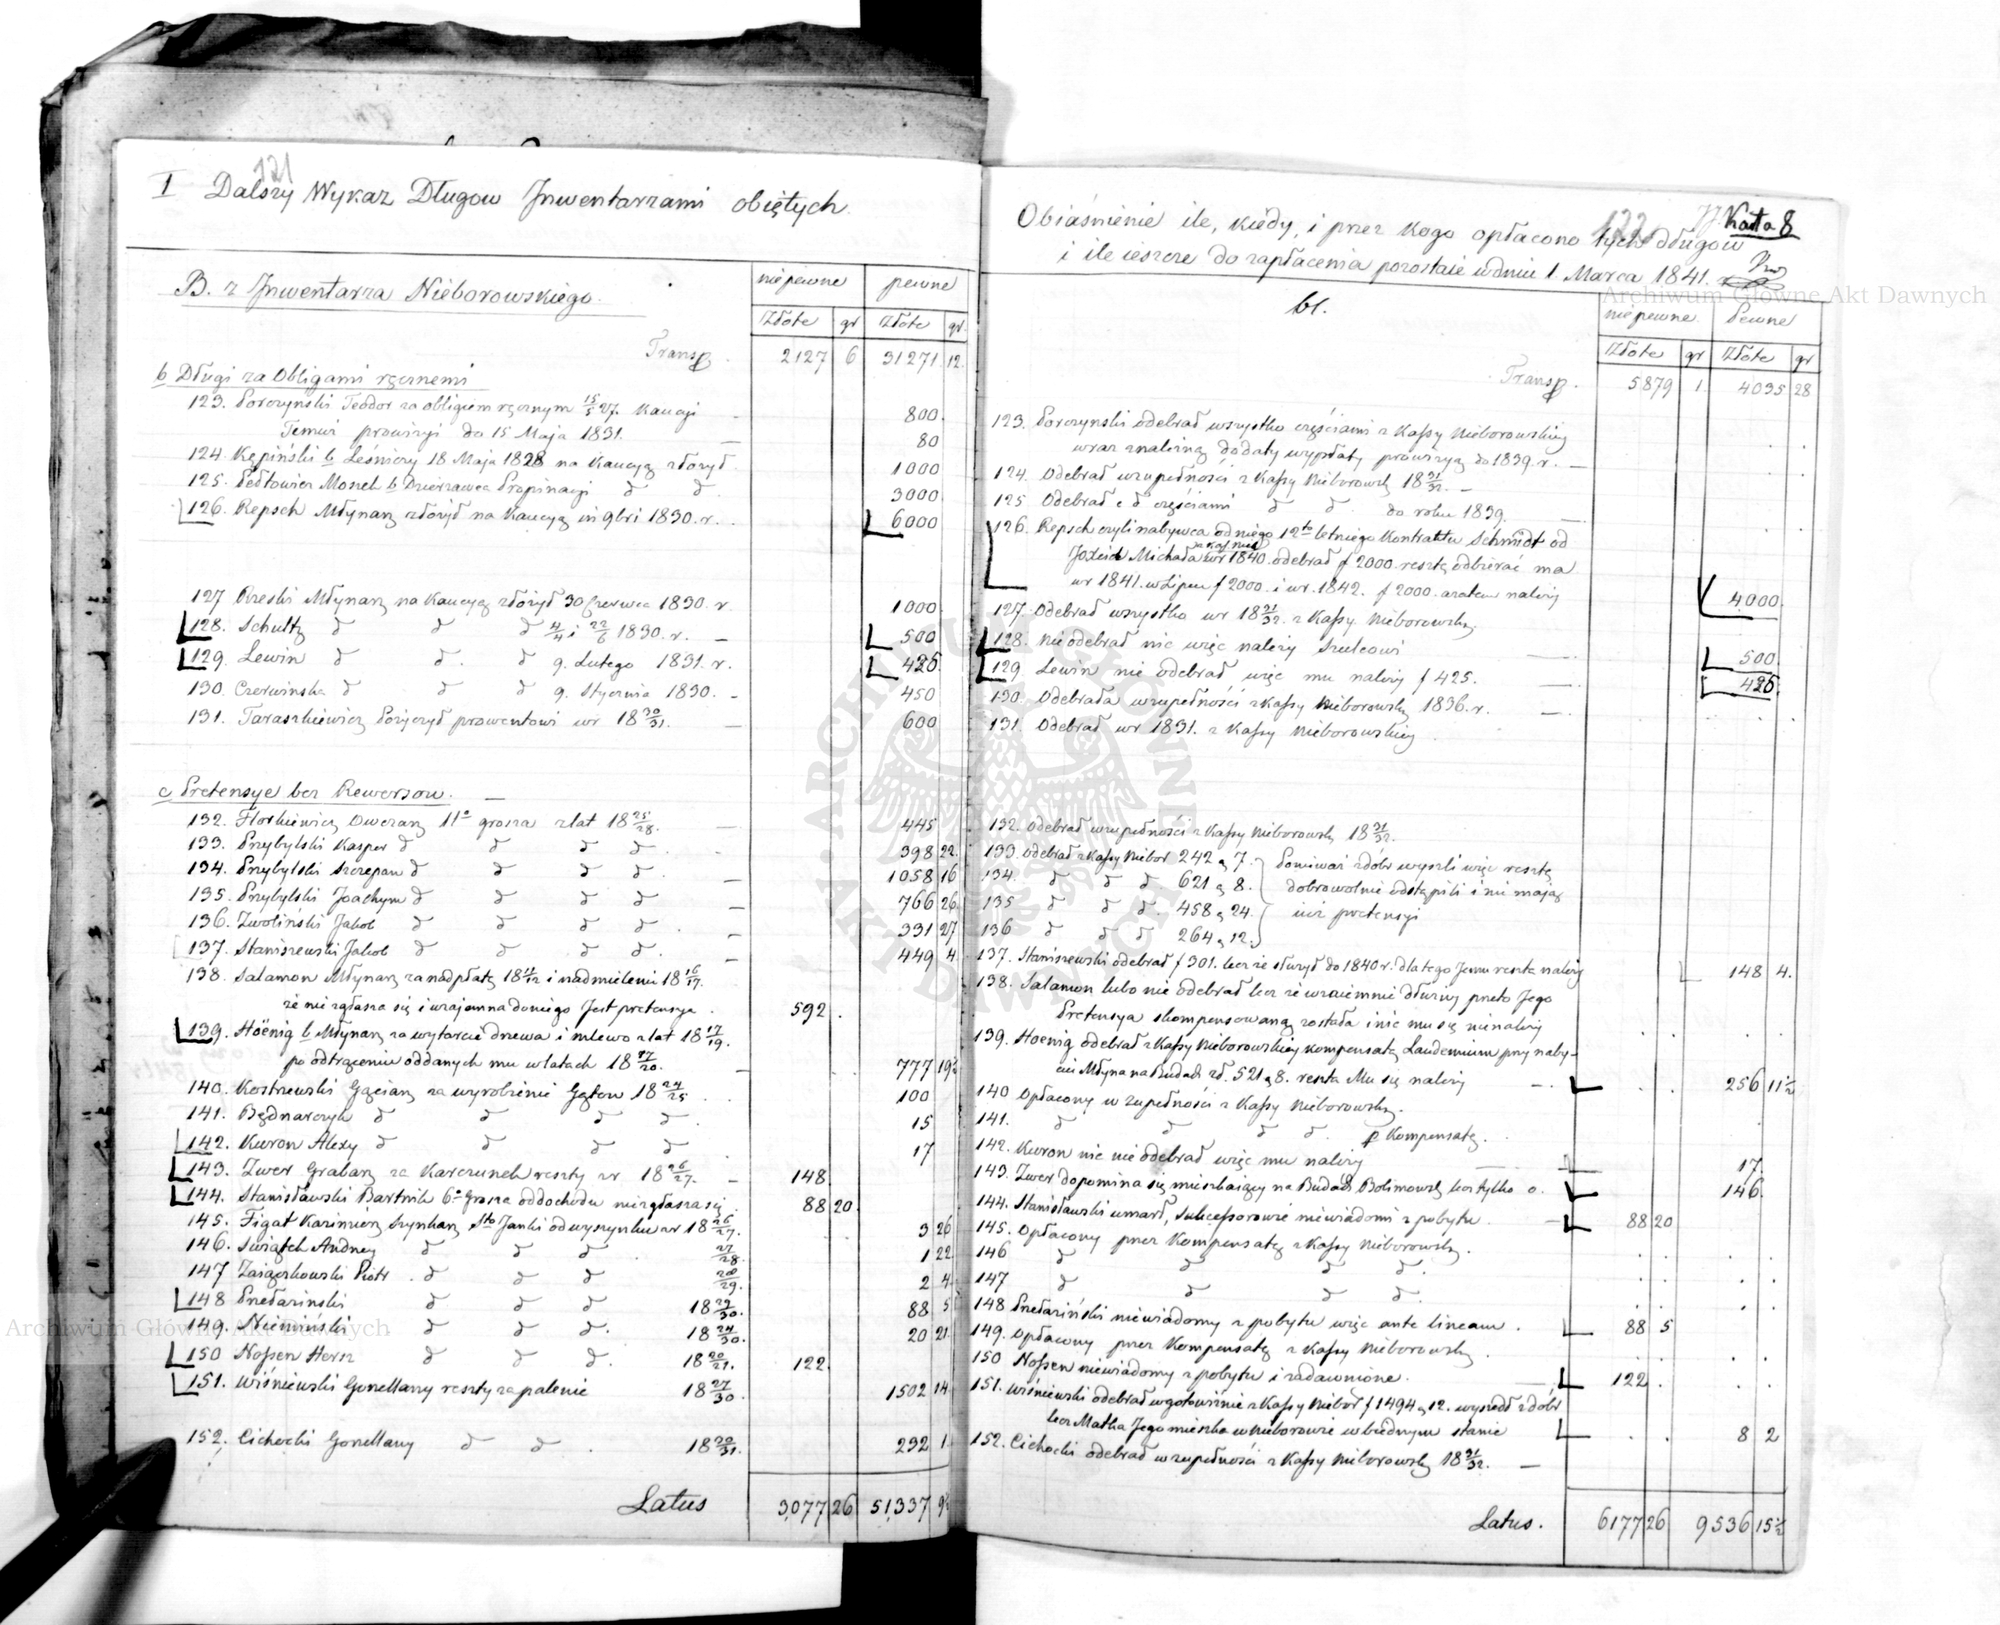 121
I Dalszy Wykaz Długow Jnwentarzami obiętych
B. z Jnwentarza Nieborowskiego.
niepewne pewne
Złote gr Złote gr.
Transp. 2127 6 31271 12.
b Długi za Obligami ręcznemi
123. Porczynski Teodor za obligiem ręcznym 15/5 27. Kaucyi 800.
Temuż prowizyi do 15 Maja 1831. 80
124. Kępiński b Leśniczy 18 Maja 1828 na Kaucyą złożył 1000
125. Pedłowicz Mosek b Dzierzawca Propinacyi d d. 3000
126. Repsch Młynarz złożył na Kaucyą in 9bri 1830. r. 6000
127 Rzeski Młynarz na Kaucyą złożył 30 Czerwca 1830. r. 1000
128. Schultz d d d 4/4 i 22/6 1830. r. 500
129. Lewin d d. d 9. Lutego 1831. r. 425.
130. Czerwinska d d d 9. Stycznia 1830. 450
131. Taraszkiewicz Pożyczył prowentowi w r 18 30/31. 600
c Pretensye bez Rewersow.
132. Florkiewicz Owczarz 11o grosza z lat 18 25/28. 445
133. Przybylski Kasper d d d d. 398 22.
134. Przybylski Szczepan d d d d. 1058 16
135. Przybylski Joachym d d d d. 766 26.
136. Zwoliński Jakob d d d d. 331 27
137. Staniszewski Jakob d d d d. 449 4.
138. Salamon Młynarz za nadpłatę 18 11/12 i nadmielenie 18 16/17.
że nie zgłasza się i wzajemna do niego Jest pretensya. 592.
139. Höenig b Młynarz za wytarcie drzewa i mlewo z lat 18 17/19.
po odtrąceniu oddanych mu w latach 18 17/20. 777 19½
140. Kostrzewski Gęciarz za wyrobienie Gętow 18 24/25. 100
141. Będnarczyk d d d d. 15
142. Kuron Alexy d d d d 17
143. Zwer Grabarz za Karczunek reszty z r 18 26/27. 148
144. Stanisławski Bartnik 6o Grosza od dochodu nie zgłasza się. 88 20
145. Figat Kazimierz Szynkarz Sto Janki od wyszynku z r 18 26/27. 3 26
146. Swiątek Andrzey d d d. 27/28. 1 22
147 Zasiączkowski Piotr. d d d 28/29. 2 4
148 Przełaziński d d d 18 29/30. 88 5
149. Niemiński d d d. 18 24/30. 20 21.
150 Nossen Hersz d d d. 18 20/21. 122.
151. Wiśniewski Gorzellany reszty za palenie 18 27/30. 1502 14
152. Cichocki Gorzellany d d. 18 30/31. 232 1
Latus 3,077 26 51,337 9½
122 Karta 8
Obiaśnienie ile, kiedy, i przez kogo opłacono tych długow
i ile ieszcze do zapłacenia pozostaie w dniu 1. Marca 1841.
bl.
niepewne. Pewne
Złote gr Złote gr
Transp. 5879 1. 4035 28
123. Porczynski odebrał wszystko częściami z Kassy Nieborowskiey
wraz z należną do daty wypłaty prowizyą do 1839. r.
124. Odebrał w zupełności z Kassy Nieborowsk. 18 31/32.
125 Odebrał d częściami d d. do roku 1839.
126. Repsch czyli nabywca od niego 12to letniego Kontraktu Schmidt od
Michała w r 1840. odebrał f 2000. resztę odbierać ma
w r 1841. w Lipcu f 2000. i w r. 1842. f 2000. zatem należy 4000.
127. Odebrał wszystko w r 18 31/32. z Kassy Nieborowsk.
128. nie odebrał nic więc należy Szulcowi 500
129. Lewin nie odebrał więc mu należy f 425. 425.
130. Odebrała w zupełności z Kassy Nieborowsk. 1836. r.
131. Odebrał w r 1831. z Kassy Nieborowskiey
132. Odebrał w zupełności z Kassy Nieborowsk. 18 31/32.
133. odebrał z Kassy Niebor 242 g 7. Ponieważ z dobr wyszli więc resztę
134. d d d. 621 g 8. dobrowolnie odstąpili i nie mają
135 d d d. 458 g 24. iuż pretensyi
136 d d d 264 g 12.
137. Staniszewski odebrał f 301. lecz że służył do 1840 r. dla tego Jemu reszta należy 148 4.
138. Salamon lubo nie odebrał lecz że wzaiemnie dłużny przeto Jego
Pretensya skompensowaną została i nic mu się nienależy
139. Hoenig odebrał z Kassy Nieborowskiey kompensatę Laudemium przy naby-
ciu Młyna na Budach zł. 521 g 8. reszta Mu się należy 256 11½
140 Opłacony w zupełności z Kassy Nieborowsk.
141. d d d d. p Kompensatę.
142. Kuron nic nie odebrał więc mu należy 17.
143. Zwer dopomina się mieszkaiący na Budach Bolimowsk. lecz tylko o. 146.
144. Stanisławski umarł, Sukcessorowie niewiadomi z pobytu. 88 20
145. Opłacony przez Kompensatę z Kassy Nieborowsk.
146 d d d d.
147 d d d d
148 Przełaziński niewiadomy z pobytu więc ante lineam. 88 5
149. Opłacony przez Kompensatę z Kassy Nieborowsk.
150 Nossen niewiadomy z pobytu i zadawnione. 122.
151. Wiśniewski odebrał w gotowiźnie z Kassy Niebor f 1494 g 12. wyszedł z dóbr
lecz Matka Jego mieszka w Nieborowie w biednym stanie 8 2
152. Cichocki odebrał w zupełności z Kassy Nieborowsk. 18 31/32.
Latus. 6177 26 9536 15½
Archiwum Główne Akt Dawnych
Archiwum Główne Akt Dawnych
ARCHIWUM GŁÓWNE AKT DAWNYCH